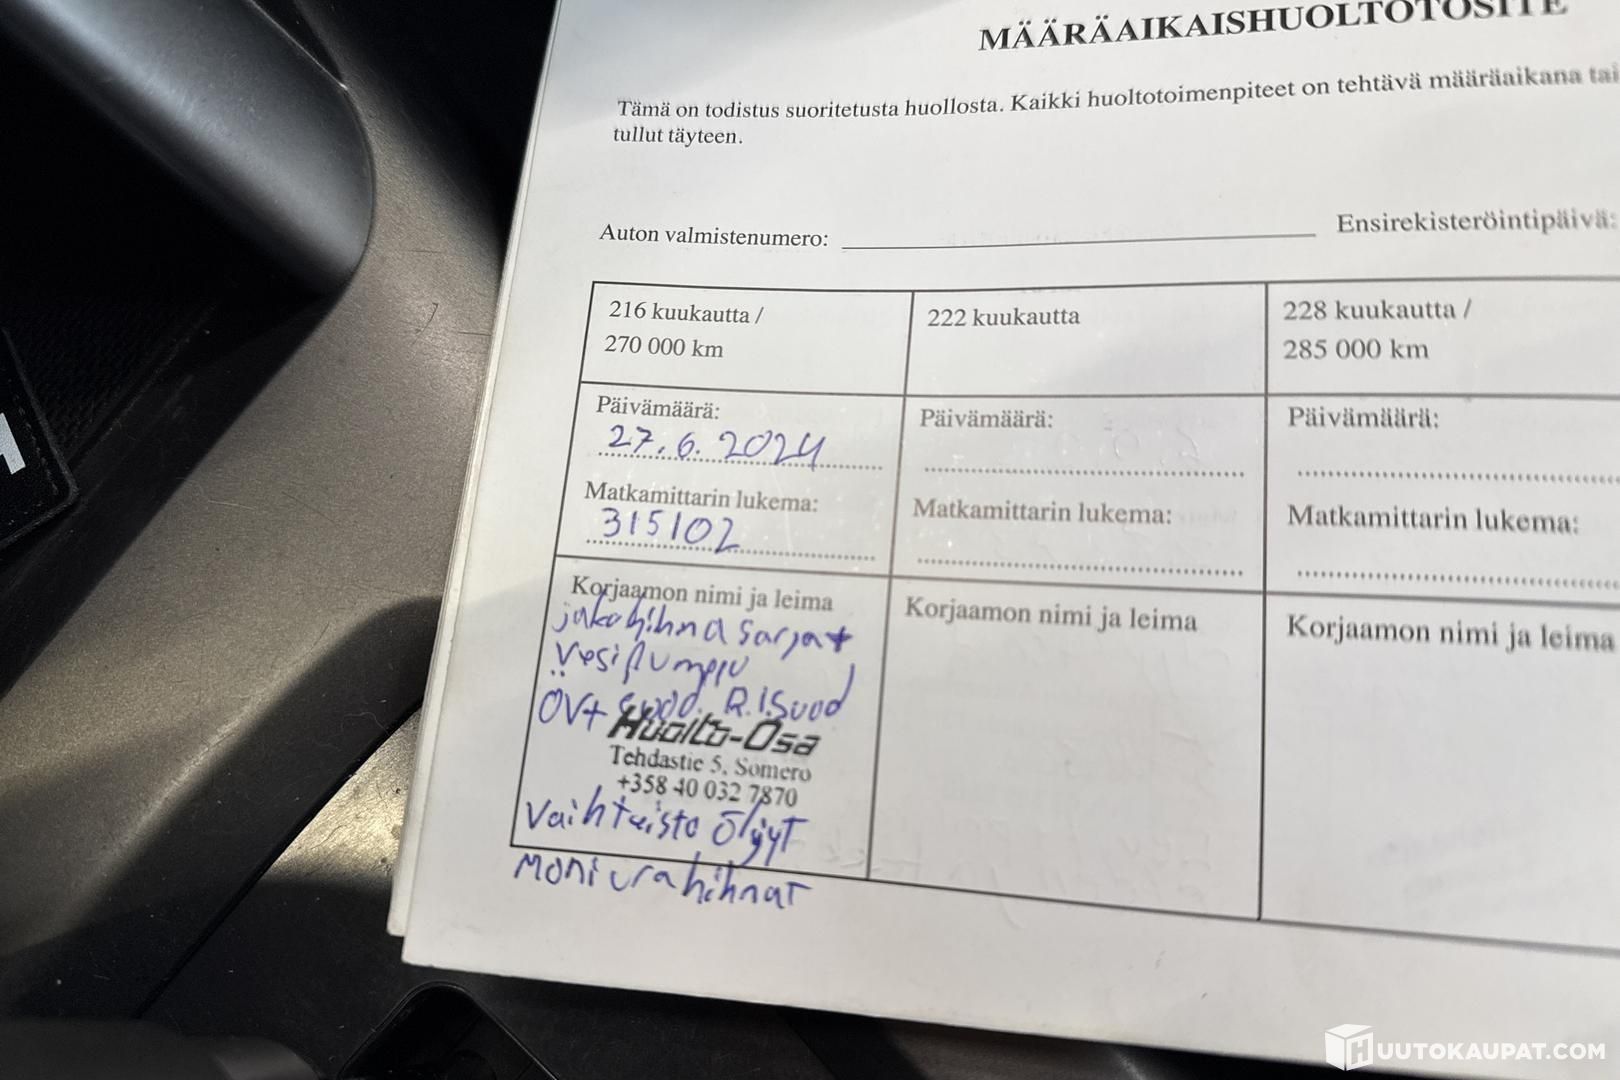 MÄÄRÄAIKAISHUOLTOTOSITE
Tämä on todistus suoritetusta huollosta. Kaikki huoltotoimenpiteet on tehtävä määräaikana tai
tullut täyteen.
Auton valmistenumero:
Ensirekisteröintipäivä:
216 kuukautta /
270 000 km
Päivämäärä:
27.6.2024
Matkamittarin lukema:
315102
Korjaamon nimi ja leima
jakohihna sarja +
vesipumppu
ÖV+ R.I.Suod
Huolto-Osa
Tehdastie 5, Somero
+358 40 032 7870
Vaihteisto öljyt
moniurahihnat
222 kuukautta
Päivämäärä:
Matkamittarin lukema:
Korjaamon nimi ja leima
228 kuukautta /
285 000 km
Päivämäärä:
Matkamittarin lukema:
Korjaamon nimi ja leima
HUUTOKAUPAT.COM